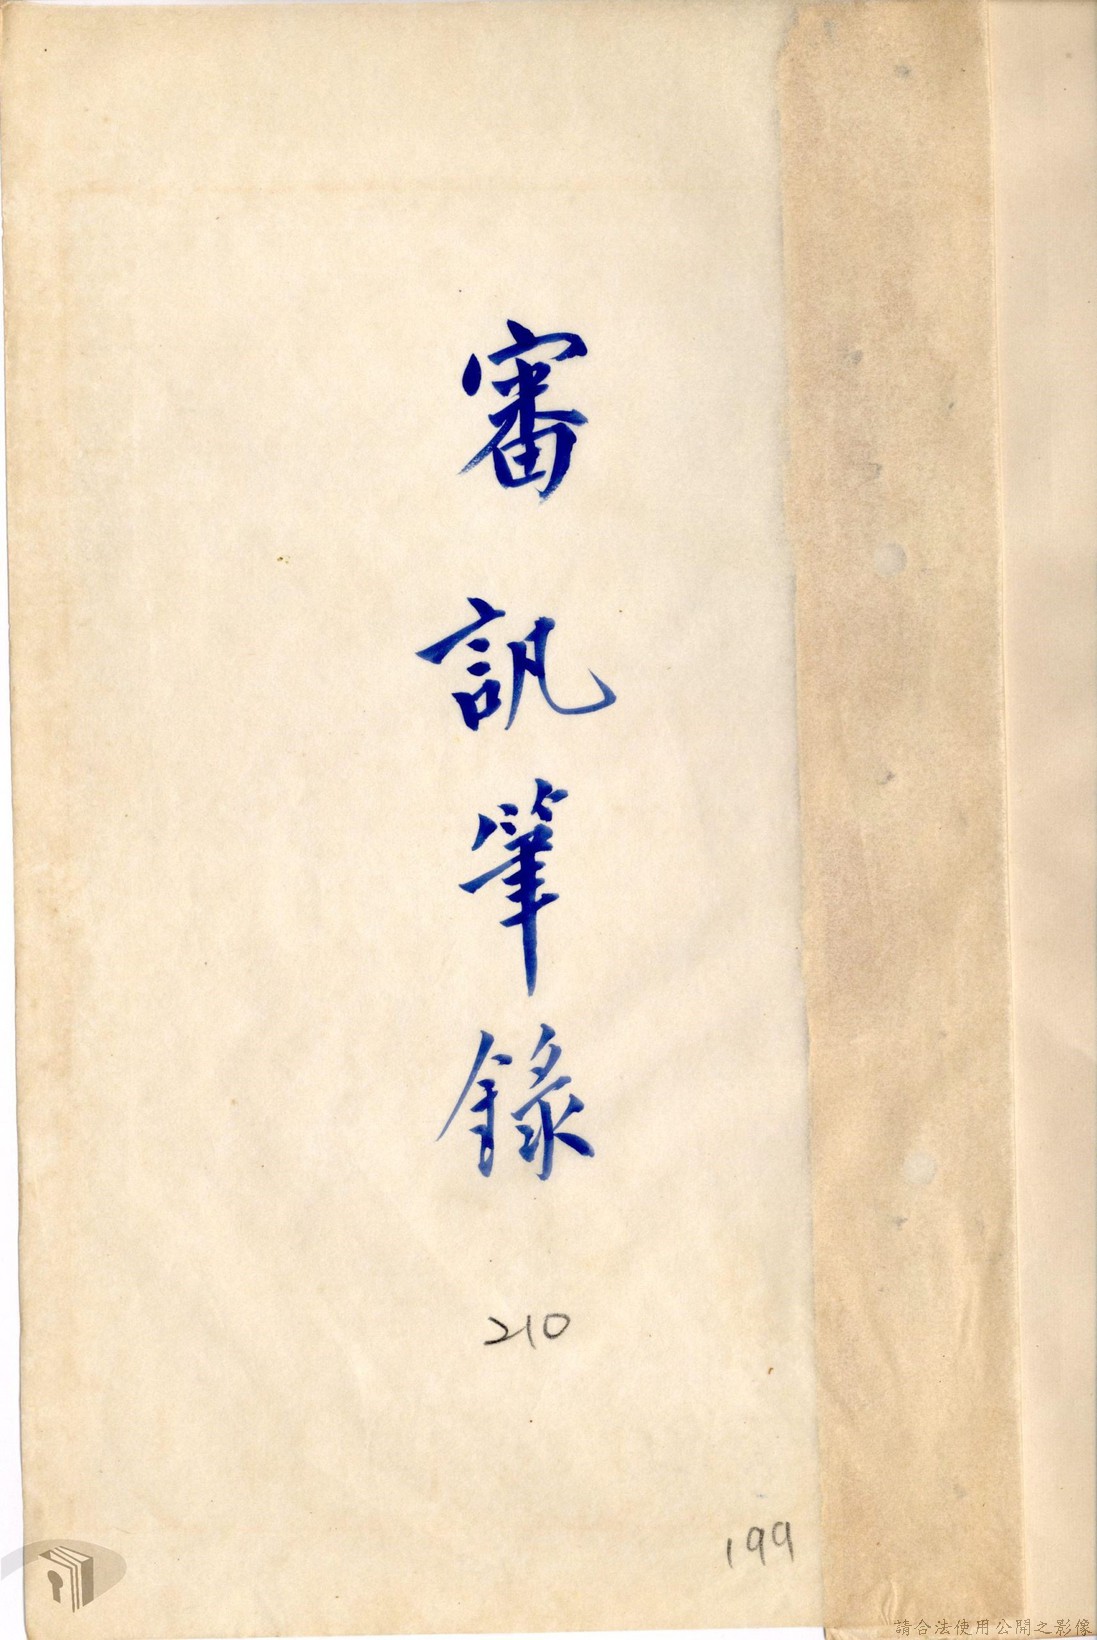 審訊筆錄
210
199
請合法使用公開之影像